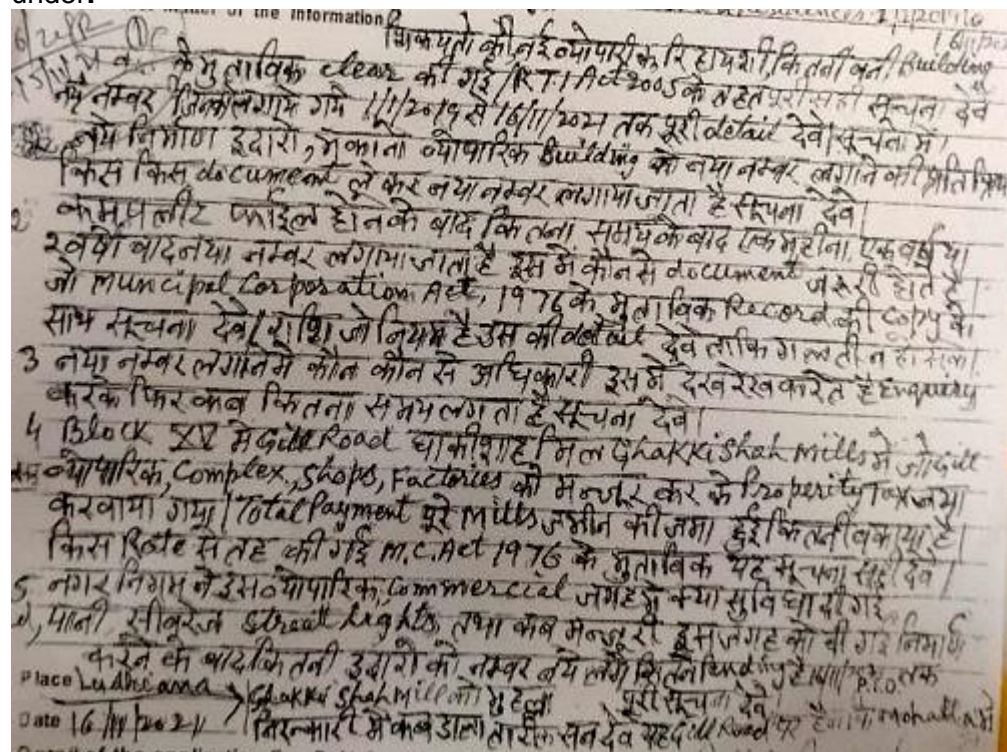 under.
Matter of the Information
शिकायतो की, नई व्योपारी, करि हायशी, कितनी बनी Building
के मुताबिक clear की गई / RTI Act 2005 के तहत पूरी सही सूचना देवे
नये नम्बर जिनको लगाये गये 1/1/2019 से 16/11/2021 तक पूरी detail देवे। सूचना में।
नये निर्माण इदारो, मकानो व्योपारिक Building को नया नम्बर लगाने की
किस किस document ले कर नया नम्बर लगाया जाता है सूचना देवे।
2 कमपलीट फाईल होने के बाद कितना समय के बाद एक महीना, एक वर्ष या
2 वर्षो बाद नया नम्बर लगाया जाता है इस में कौन से document जरूरी होते है।
जो Muncipal Corporation Act, 1976 के मुताबिक Record की Copy के
साथ सूचना देवे। राशि जो नियम है उस की detail देवे ताकि गलती न हो सके।
3 नया नम्बर लगाने में कौन कौन से अधिकारी इस में देख रेख करते है Enquiry
करके फिर कब कितना समय लगता है सूचना देवे।
4 Block XV में Gill Road घाकीशाह मिल Ghakki Shah Mills में जो Gill
व्योपारिक, Complex, Shops, Factories को मन्जूर कर के Properity Tax जमा
करवाया गया। Total Payment पूरे Mills जमीन की जमा हुई कितनी बकाया है।
किस Rate से तह की गई M.C. Act 1976 के मुताबिक यह सूचना सही देवे।
5 नगर निगम ने इस व्योपारिक, Commercial जगह में क्या सुविधा दी गई
पानी, सीवरेज Street Lights, तथा कब मन्जूरी इस जगह को दी गई निर्माण
करने के बाद कितनी इदारो को नम्बर नये लगे कितने Pending है 16/11/ तक
Place Ludhiana Ghakki Shah Mill को पूरी सूचना देवे P.T.O.
Date 16/11/2021 में कब डाला तारीख सन देवे यह Gill Road पर है